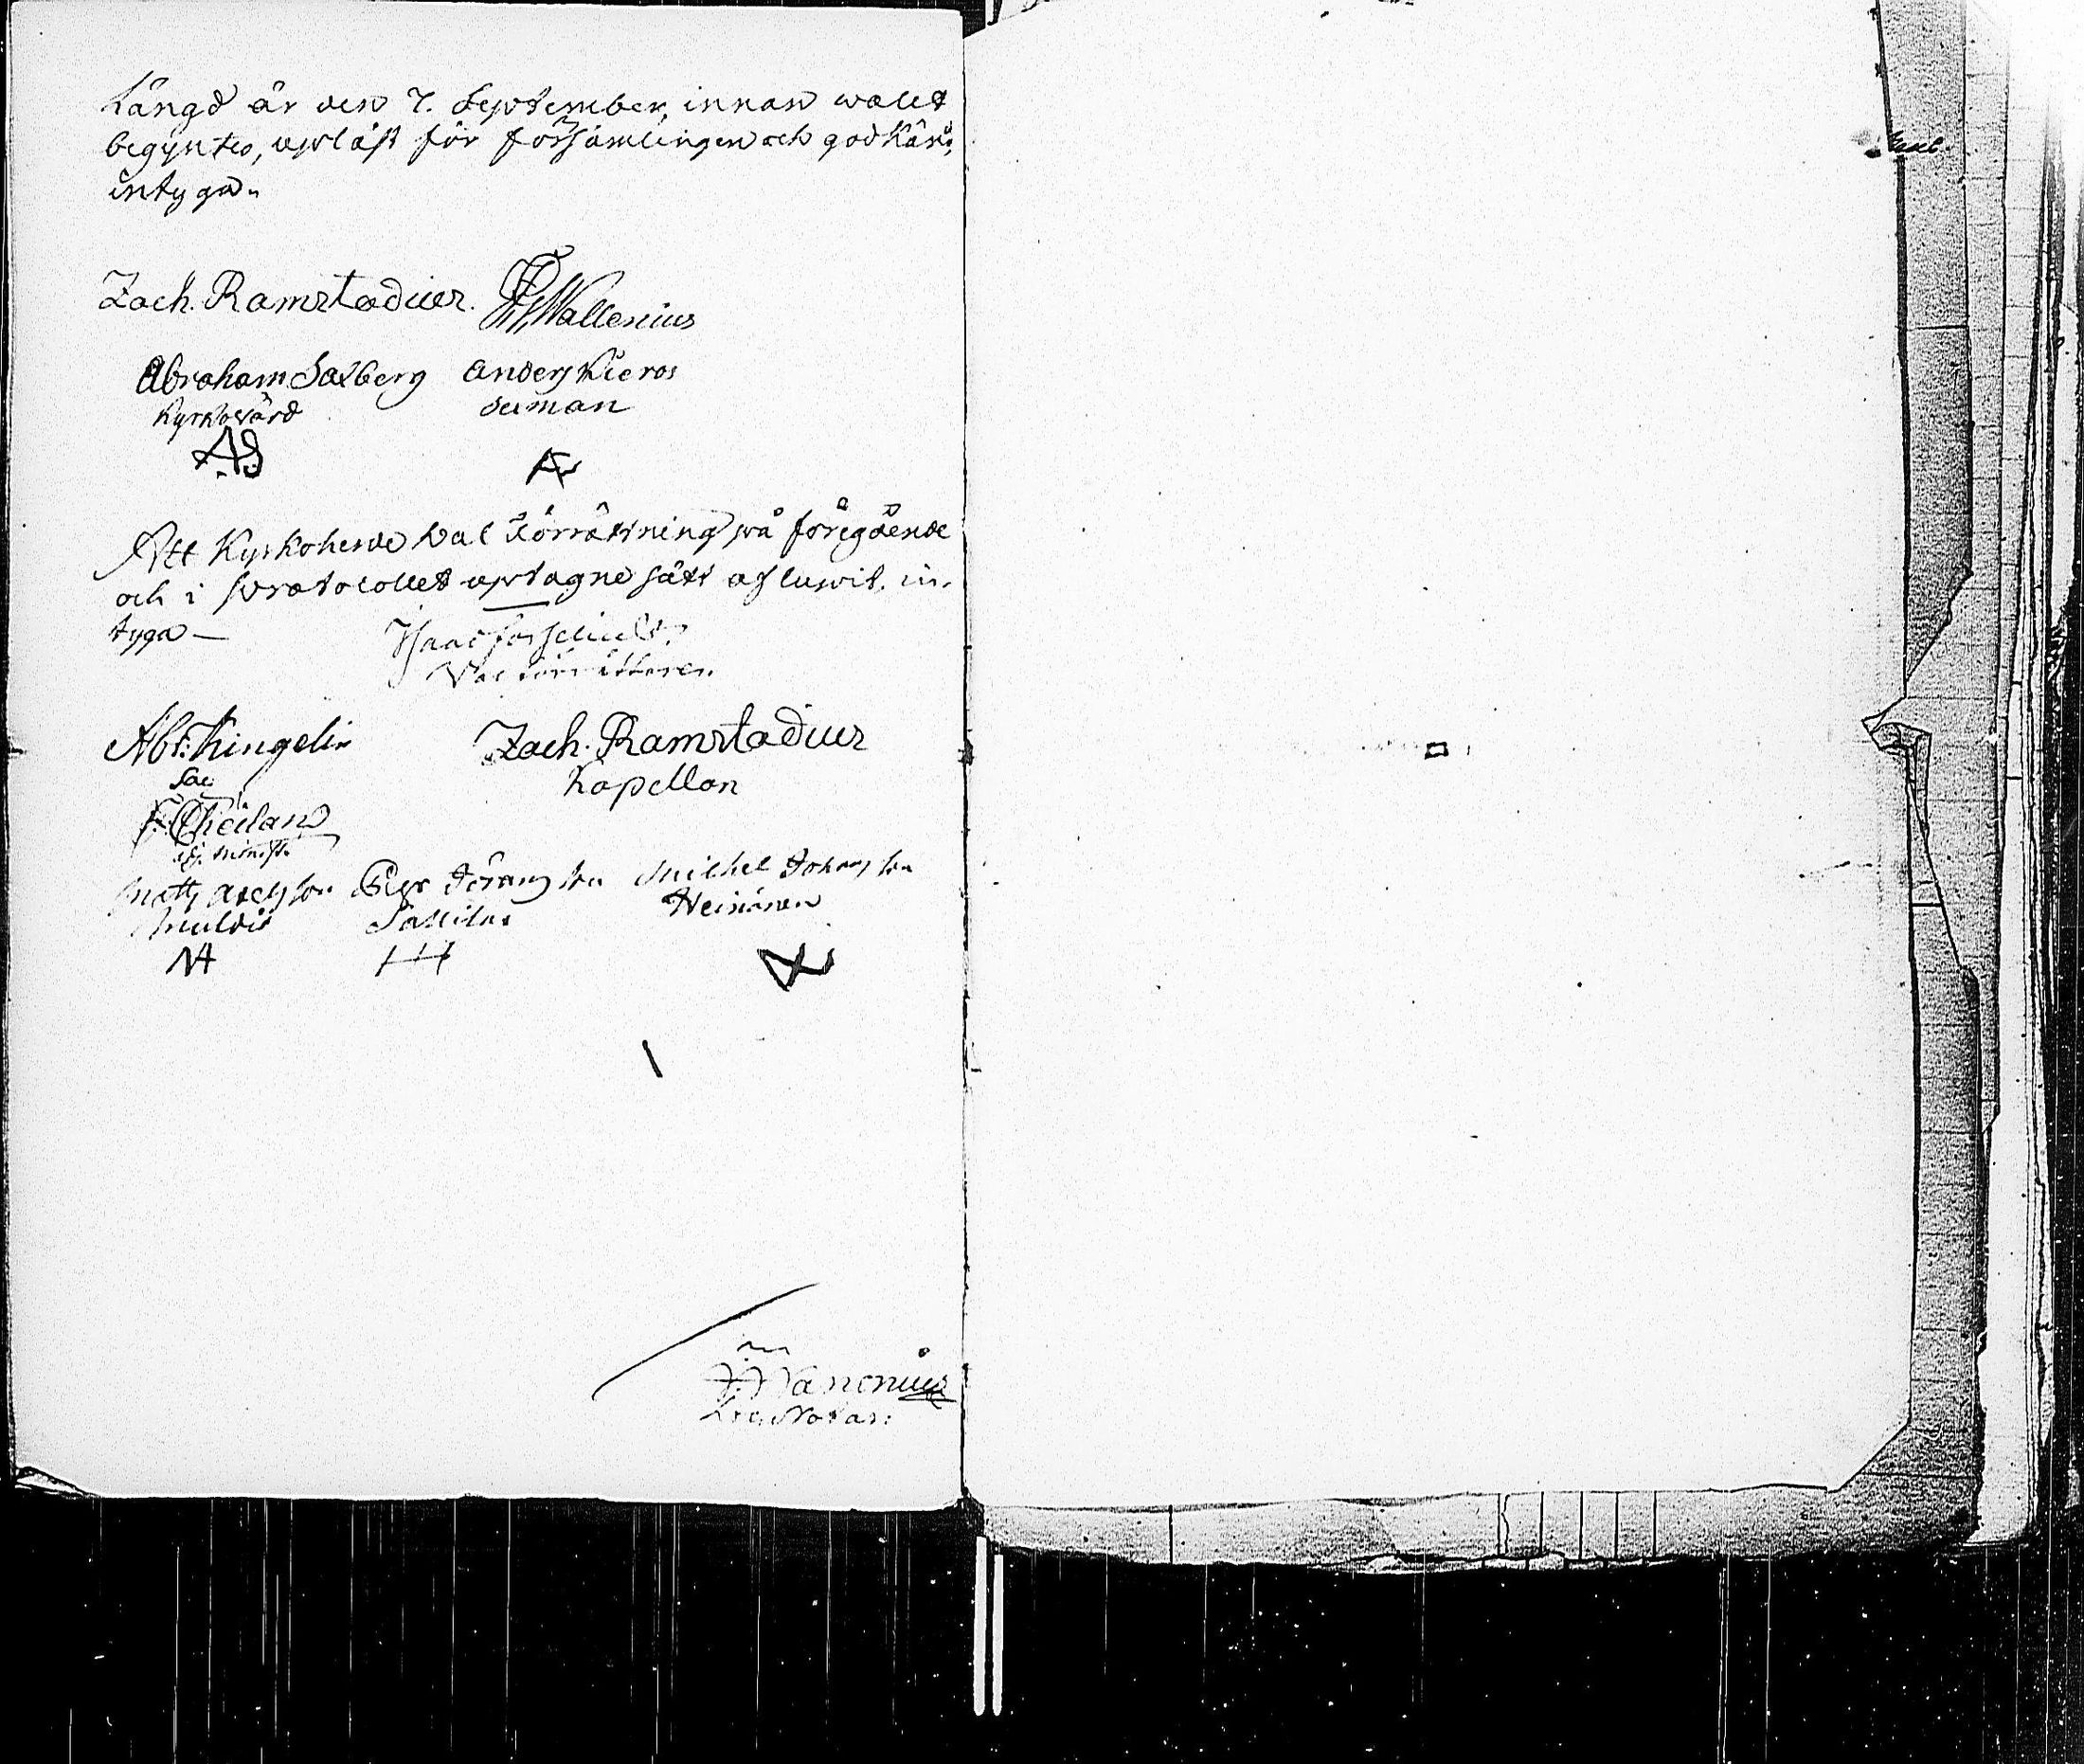 Längd är den 7. September, innan walet
begyntes, upläst för församlingen och godkänd,
intyga.
Zach. Ramstadius. Wallenius
Abraham Saxberg Anders Kieros
Kyrkowärd sexman
AS
Att Kyrkoherde Val Förrättning på föregående
och i Protocollet uptagne sätt aflupit, in-
tyga —
Isaac
Val förrättaren.
Abr: Zach. Ramstadius
Sac: Kapellan
adj. minist.
Matts Axelsson Pehr Jöransson Michel Johansson
Muldis Heinänen
MA
Notar: